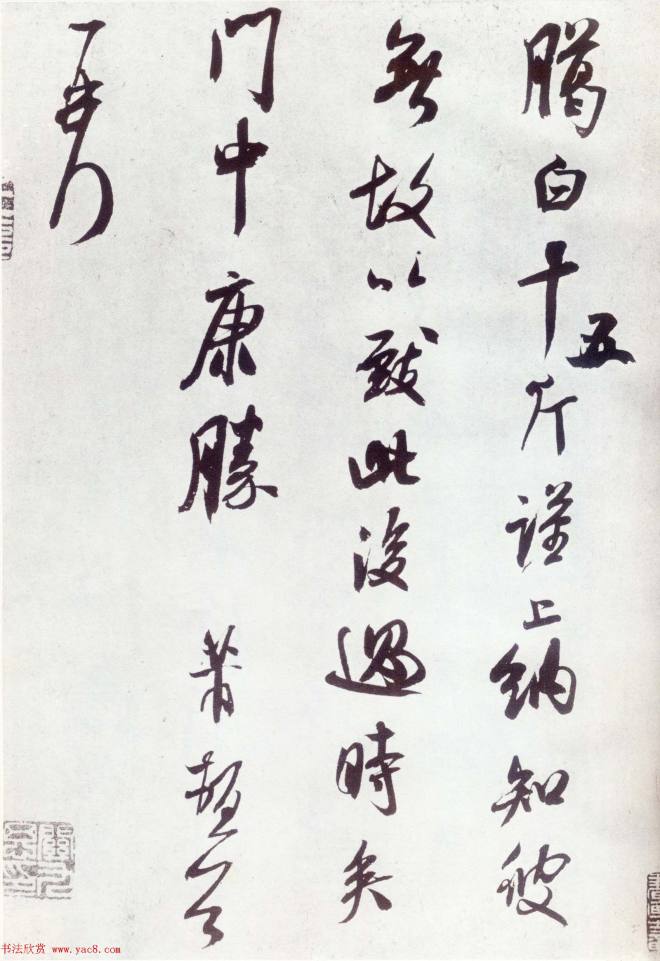 臈白十五斤謹上納知彼
無故以致此後過時矣
門中康勝 芾頓首
书法欣赏 www.yac8.com